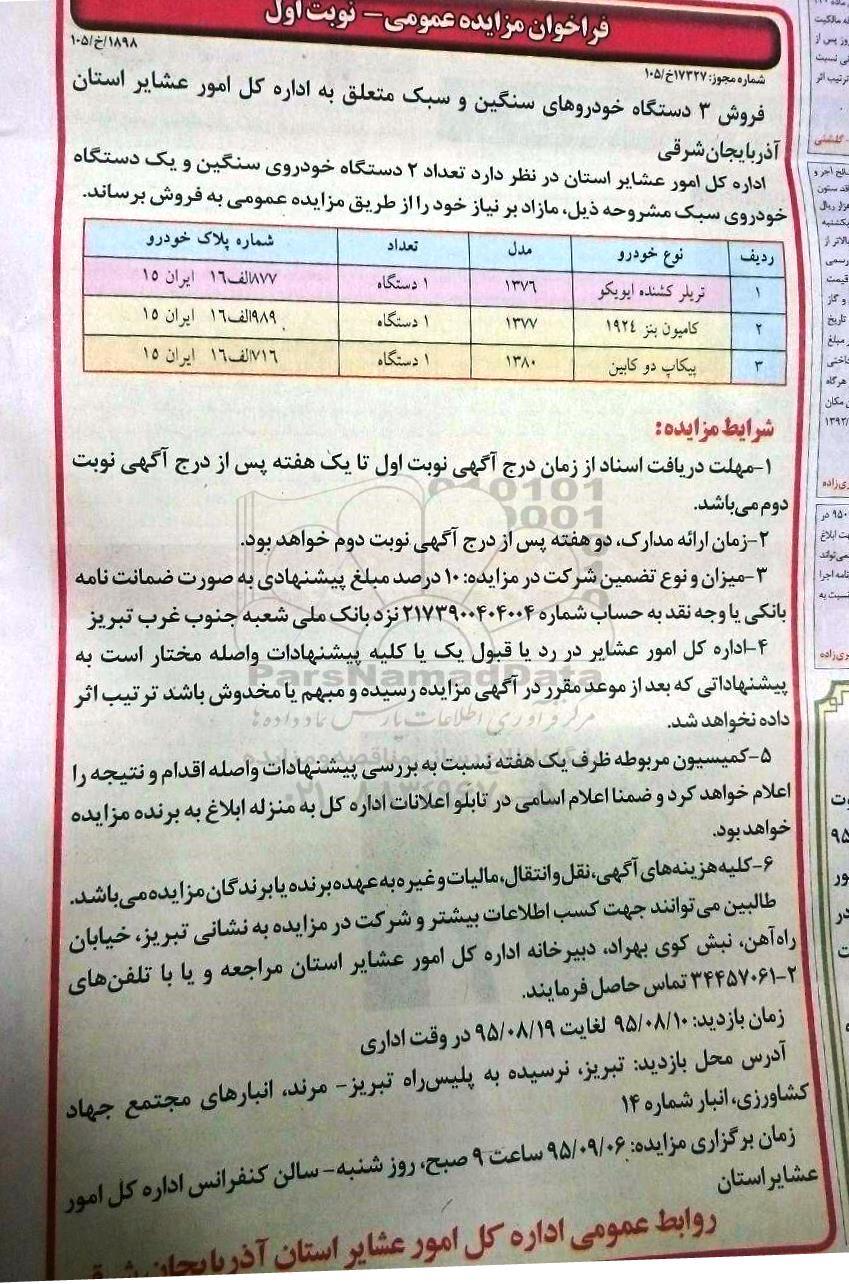 فراخوان مزایده عمومی- نوبت اول
۱۸۹۸/خ/۱۰۵
شماره مجوز: ۱۷۳۲۷خ/۱۰۵
فروش ۳ دستگاه خودروهای سنگین و سبک متعلق به اداره کل امور عشایر استان
آذربایجان‌شرقی
اداره کل امور عشایر استان در نظر دارد تعداد ۲ دستگاه خودروی سنگین و یک دستگاه
خودروی سبک مشروحه ذیل، مازاد بر نیاز خود را از طریق مزایده عمومی به فروش برساند.
ردیف نوع خودرو مدل تعداد شماره پلاک خودرو
۱ تریلر کشنده ایویکو ۱۳۷۶ ۱ دستگاه ۸۷۷الف۱۶ ایران ۱۵
۲ کامیون بنز ۱۹۲۴ ۱۳۷۷ ۱ دستگاه ۹۸۹الف۱۶ ایران ۱۵
۳ پیکاپ دو کابین ۱۳۸۰ ۱ دستگاه ۷۱۶الف۱۶ ایران ۱۵
شرایط مزایده:
۱-مهلت دریافت اسناد از زمان درج آگهی نوبت اول تا یک هفته پس از درج آگهی نوبت
دوم می‌باشد.
۲-زمان ارائه مدارک، دو هفته پس از درج آگهی نوبت دوم خواهد بود.
۳-میزان و نوع تضمین شرکت در مزایده: ۱۰ درصد مبلغ پیشنهادی به صورت ضمانت نامه
بانکی یا وجه نقد به حساب شماره ۲۱۷۳۹۰۰۴۰۴۰۰۴ نزد بانک ملی شعبه جنوب غرب تبریز
۴-اداره کل امور عشایر در رد یا قبول یک یا کلیه پیشنهادات واصله مختار است به
پیشنهاداتی که بعد از موعد مقرر در آگهی مزایده رسیده و مبهم یا مخدوش باشد ترتیب اثر
داده نخواهد شد.
۵-کمیسیون مربوطه ظرف یک هفته نسبت به بررسی پیشنهادات واصله اقدام و نتیجه را
اعلام خواهد کرد و ضمنا اعلام اسامی در تابلو اعلانات اداره کل به منزله ابلاغ به برنده مزایده
خواهد بود.
۶-کلیه هزینه‌های آگهی، نقل و انتقال، مالیات و غیره به عهده برنده یا برندگان مزایده می‌باشد.
طالبین می‌توانند جهت کسب اطلاعات بیشتر و شرکت در مزایده به نشانی تبریز، خیابان
راه‌آهن، نبش کوی بهراد، دبیرخانه اداره کل امور عشایر استان مراجعه و یا با تلفن‌های
۳۴۴۵۷۰۶۱-۲ تماس حاصل فرمایند.
زمان بازدید: ۹۵/۰۸/۱۰ لغایت ۹۵/۰۸/۱۹ در وقت اداری
آدرس محل بازدید: تبریز، نرسیده به پلیس‌راه تبریز- مرند، انبارهای مجتمع جهاد
کشاورزی، انبار شماره ۱۴
زمان برگزاری مزایده: ۹۵/۰۹/۰۶ ساعت ۹ صبح، روز شنبه- سالن کنفرانس اداره کل امور
عشایر استان
روابط عمومی اداره کل امور عشایر استان آذربایجان
ParsNamadData
مرکز فرآوری اطلاعات پارس نماد داده‌ها